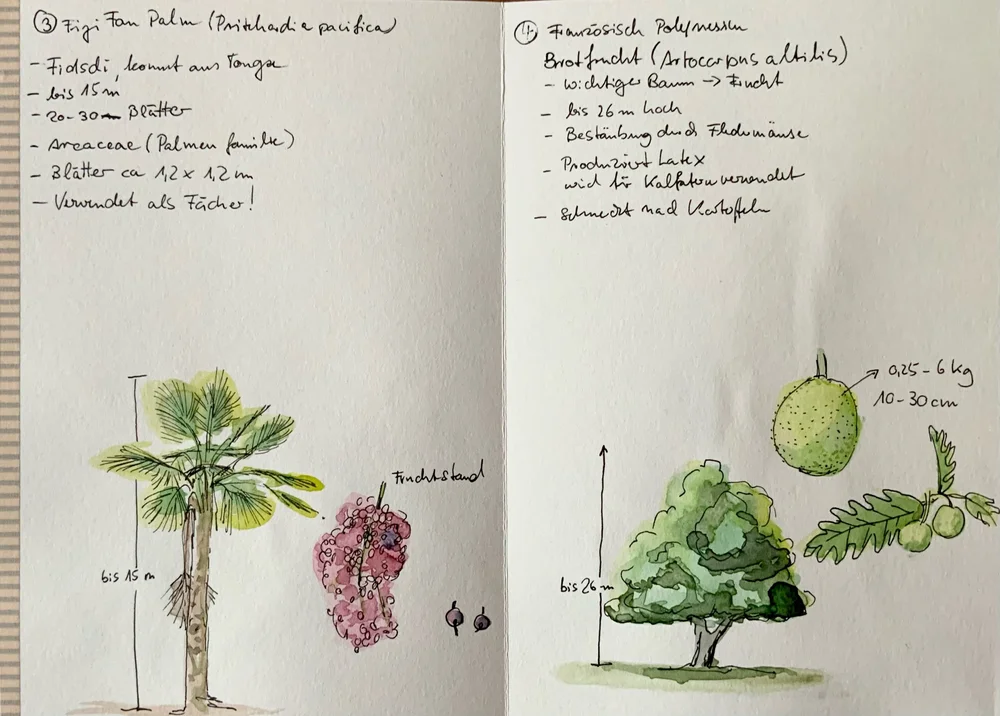 ③ Figi Fan Palm (Pritchardia pacifica)
- Fidsdi, kommt aus Tonga
- bis 15 m
- 20-30 Blätter
- Areaceae (Palmen familie)
- Blätter ca 1,2 x 1,2 m
- Verwendet als Fächer!
Fruchtstand
bis 15 m
④ Französisch Polynesien
Brotfrucht (Artocarpus altilis)
- wichtiger Baum → Frucht
- bis 26 m hoch
- Bestäubung durch Fledermäuse
- Produziert Latex
wird für Kalfatern verwendet
- schmeckt nach Kartoffeln
0,25 - 6 kg
10-30 cm
bis 26 m